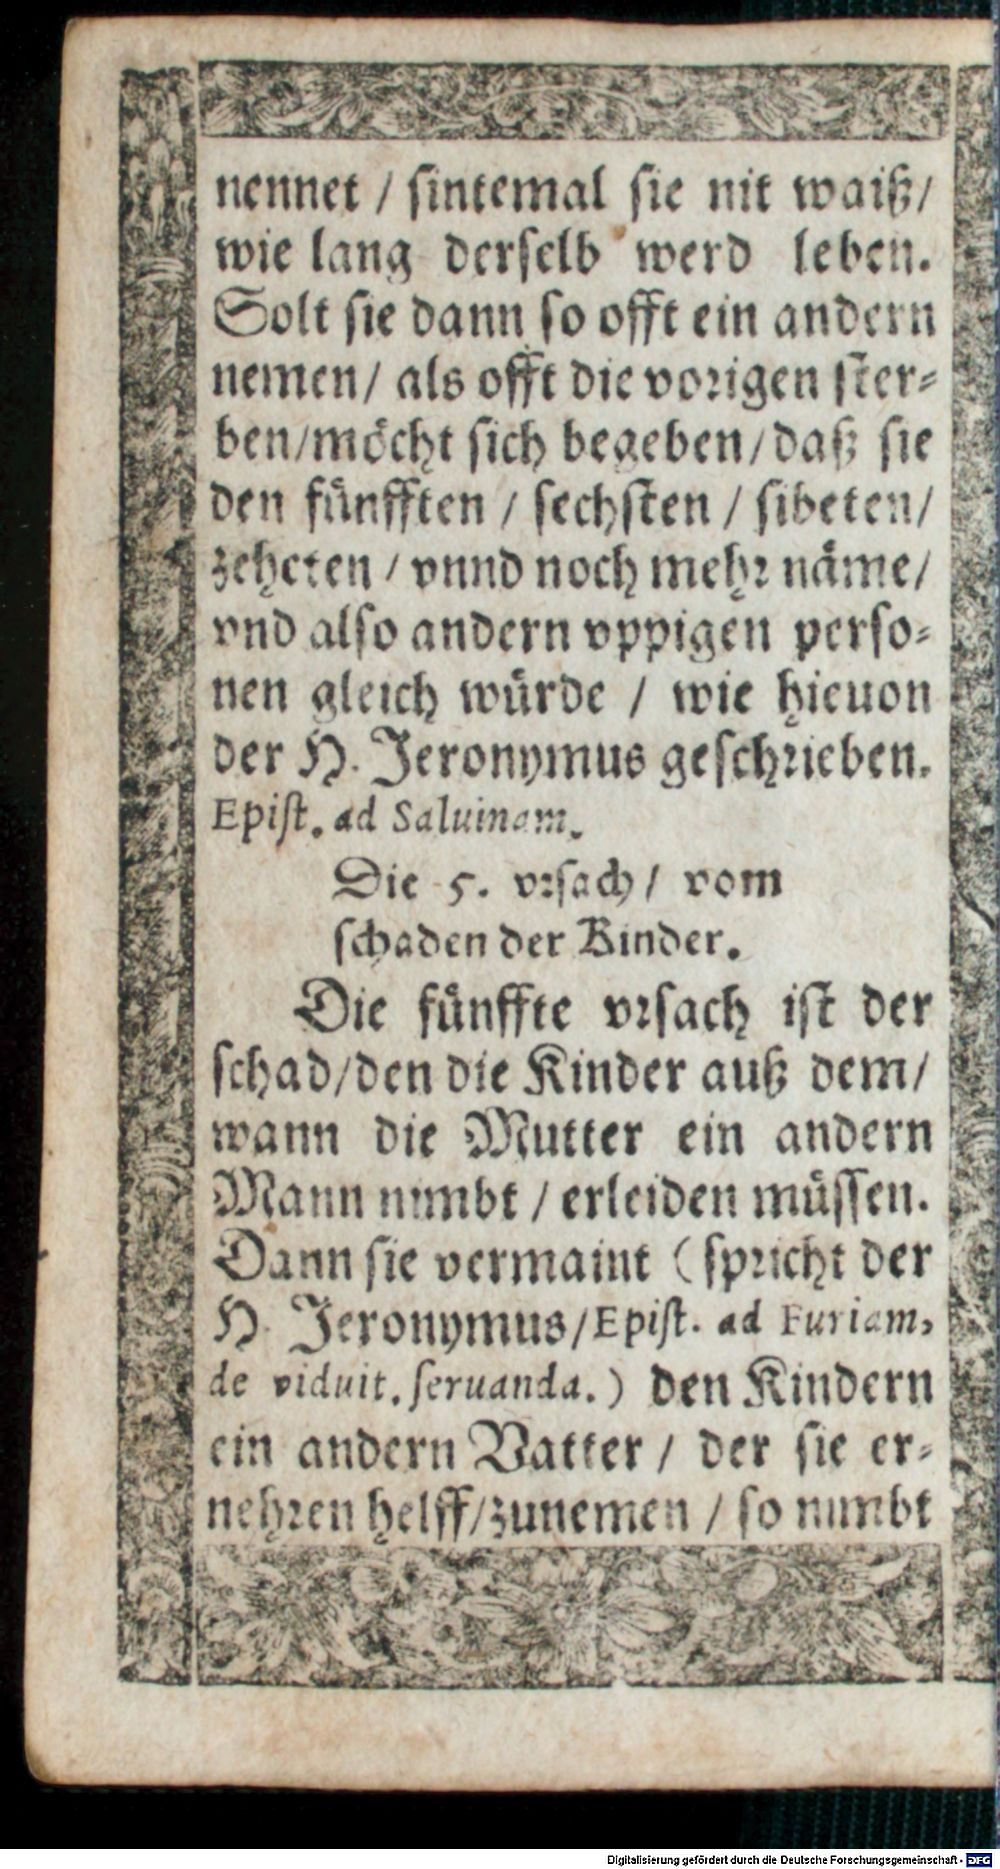 nennet / ſintemal ſie nit waiß/
wie lang derſelb werd leben.
Solt ſie dann ſo offt ein andern
nemen/ als offt die vorigen ſter⸗
ben/möcht ſich begeben/daß ſie
den fünfften / ſechſten / ſibeten/
zeheten / vnnd noch mehr näme/
vnd alſo andern vppigen perſo⸗
nen gleich würde / wie hieuon
der H. Jeronymus geſchrieben.
Epiſt. ad Saluinam.
Die 5. vrſach/ vom
ſchaden der Kinder.
Die fünffte vrſach iſt der
ſchad/den die Kinder auß dem/
wann die Mutter ein andern
Mann nimbt / erleiden müſſen.
Dann ſie vermaint (ſpricht der
H. Jeronymus/Epiſt. ad Furiam,
de viduit. ſeruanda.) den Kindern
ein andern Vatter / der ſie er⸗
nehren helff/zunemen / ſo nimbt
Digitalisierung gefördert durch die Deutsche Forschungsgemeinschaft - DFG